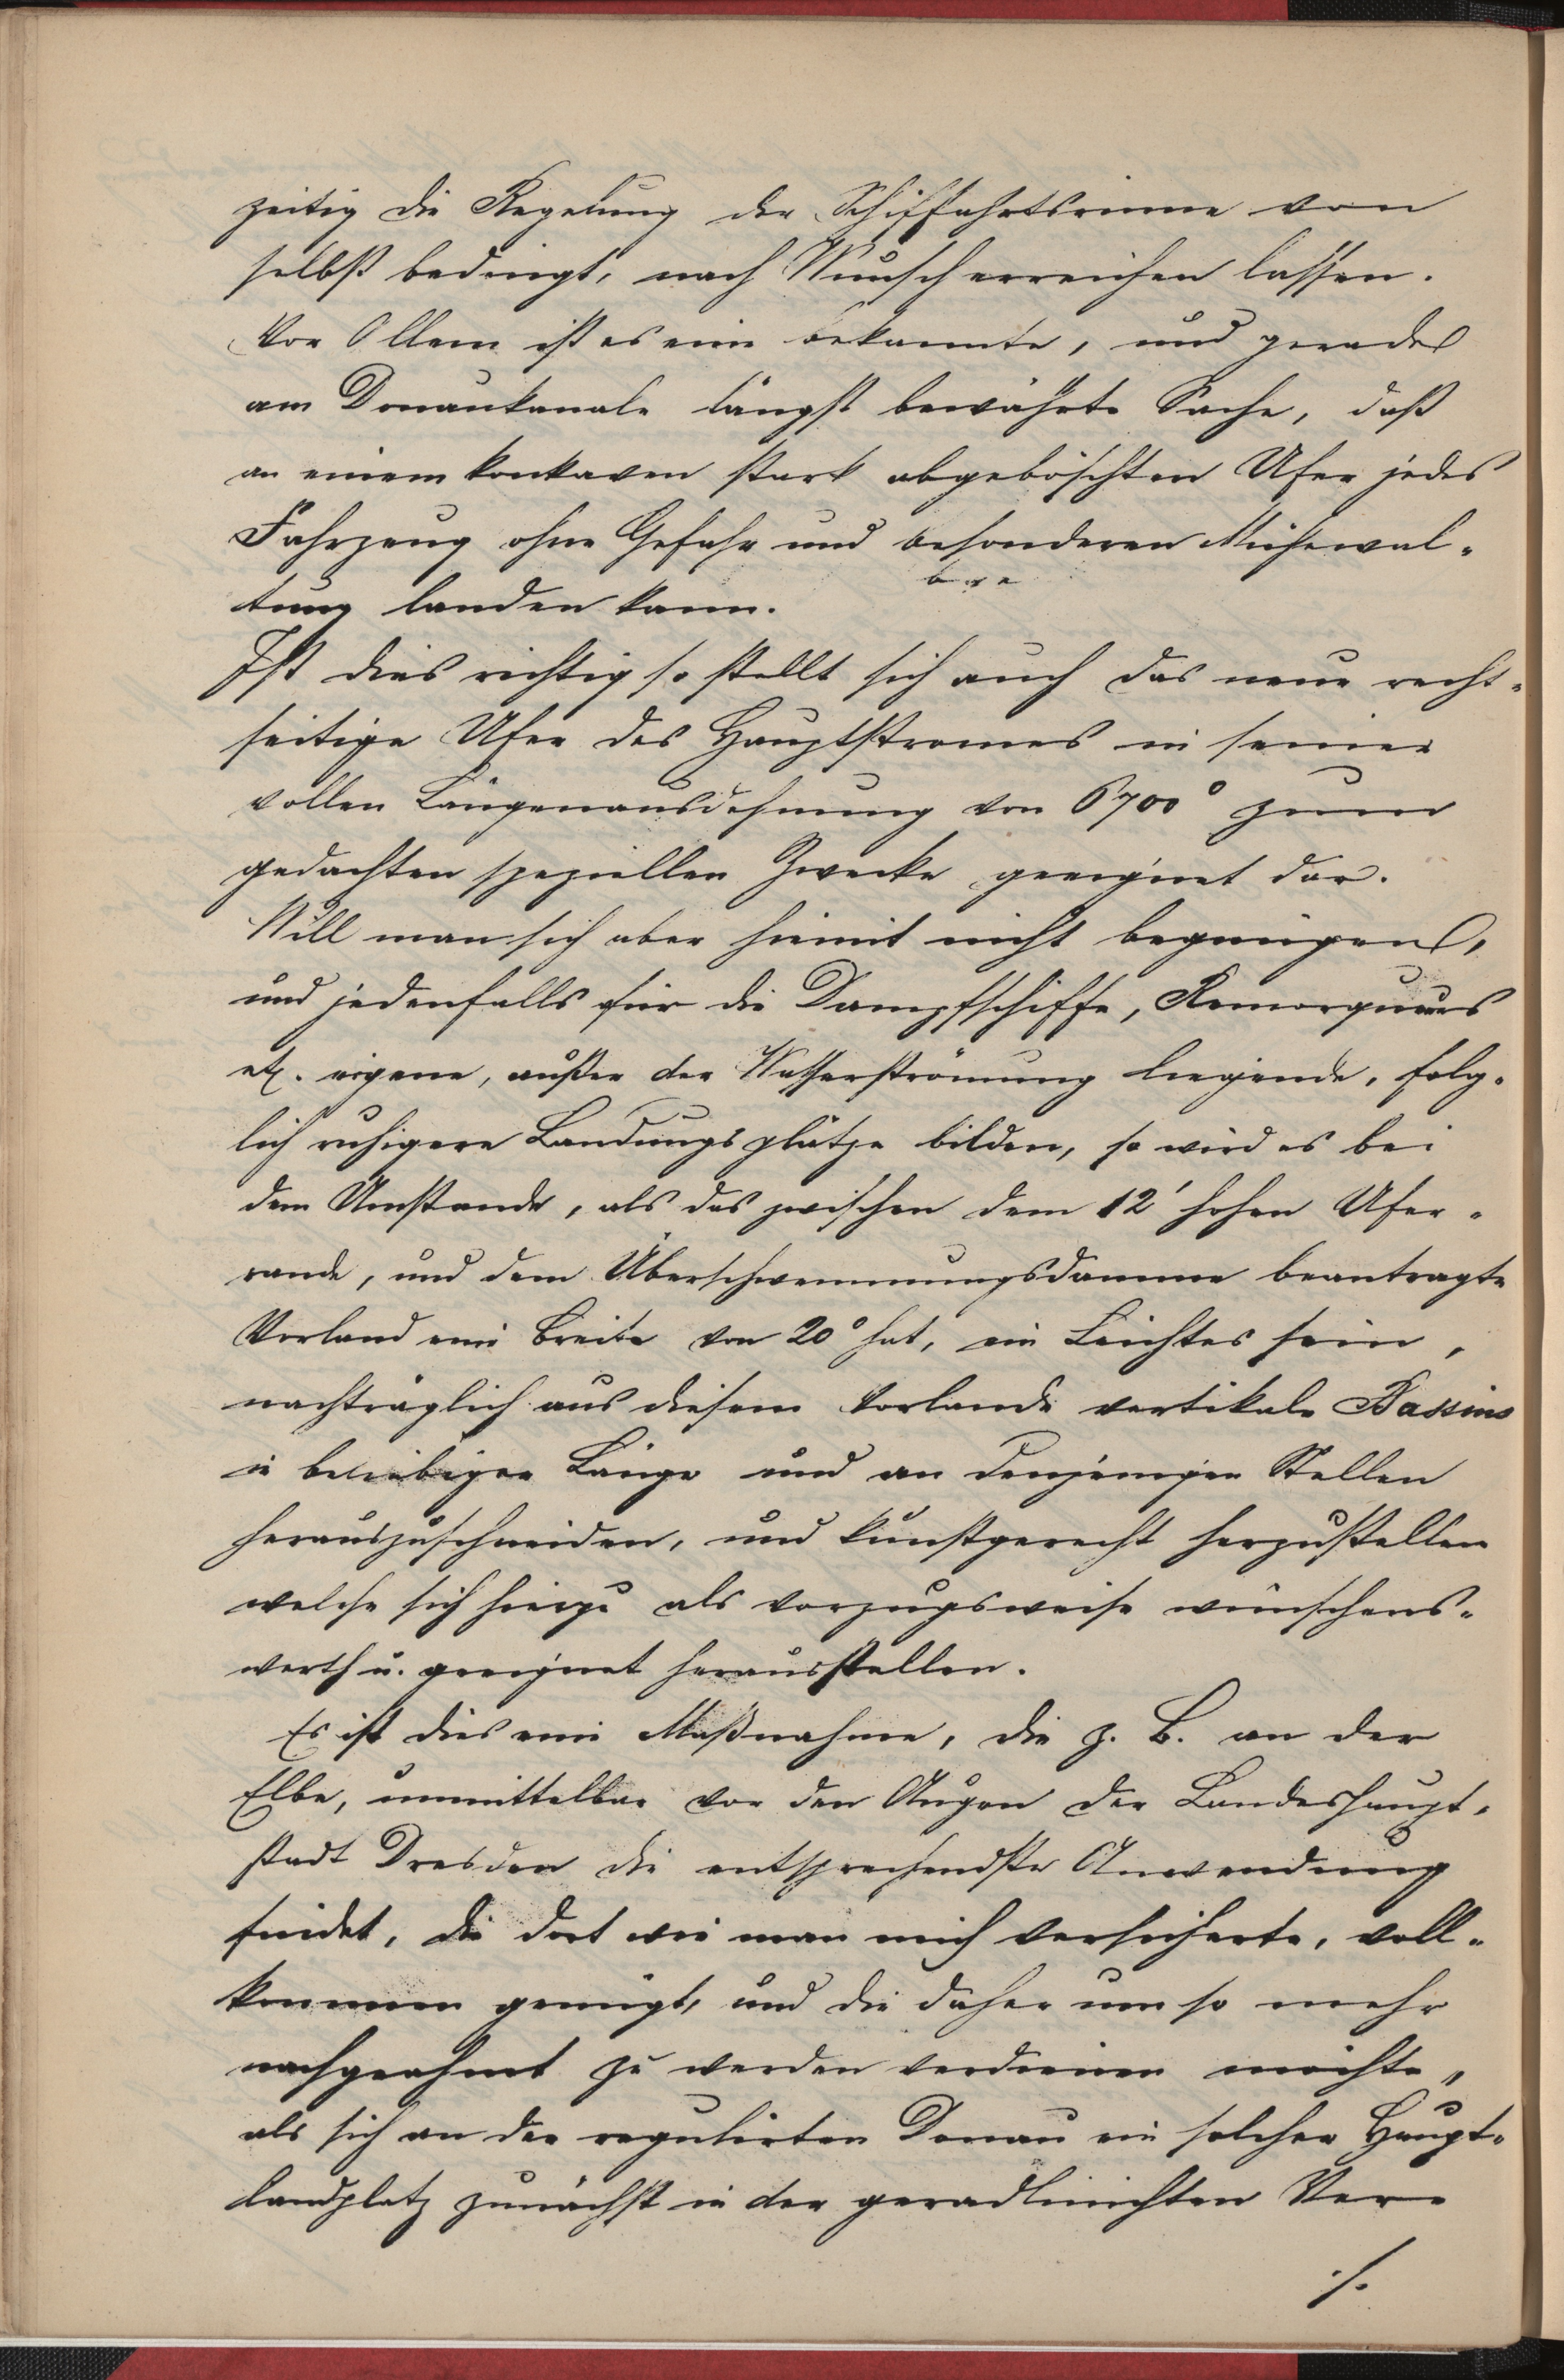 zeitig die Regelung der Schiffahrtsrinne von
selbst bedingt, nach Wunsch erreichen lassen.
Vor Allem ist es eine bekannte, und gerade
am Donaukanale längst bewährte Sache, daß
an einem konkaven stark abgeböschten Ufer jedes
Fahrzeug ohne Gefahr und besonderen Mühewal-
tung landen kann.
Ist dies richtig so stellt sich auch das neue recht-
seitige Ufer des Hauptstromes in seiner
vollen Längenausdehnung von 6700° zum
gedachten speziellen Zwecke geeignet dar.
Will man sich aber hiemit nicht begnügen,
und jedenfalls für die Dampfschiffe, Remorqueurs
etc. eigene, außer der Wasserströmung liegende, folg-
lich ruhigere Landungsplätze bilden, so wird es bei
dem Umstande, als das zwischen dem 12' hohen Ufer-
rande, und dem Überschwemmungsdamme beantragte
Vorland eine Breite von 20° hat, ein Leichtes sein,
nachträglich aus diesem Vorlande vertikale Bassins
in beliebiger Länge und an denjenigen Stellen
herauszuschneiden, und kunstgerecht herzustellen
welche sich hiezu als vorzugsweise wünschens-
werth u. geeignet herausstellen.
Es ist dies eine Maßnahme, die z. B. an der
Elbe, unmittelbar vor den Augen der Landeshaupt-
stadt Dresden die entsprechendste Anwendung
findet, die dort wie man mich versicherte, voll-
kommen genügt, und die daher um so mehr
nachgeahmt zu werden verdienen möchte,
als sich an der regulirten Donau ein solcher Haupt-
landplatz zunächst in der geradlinichten Ver-
./.